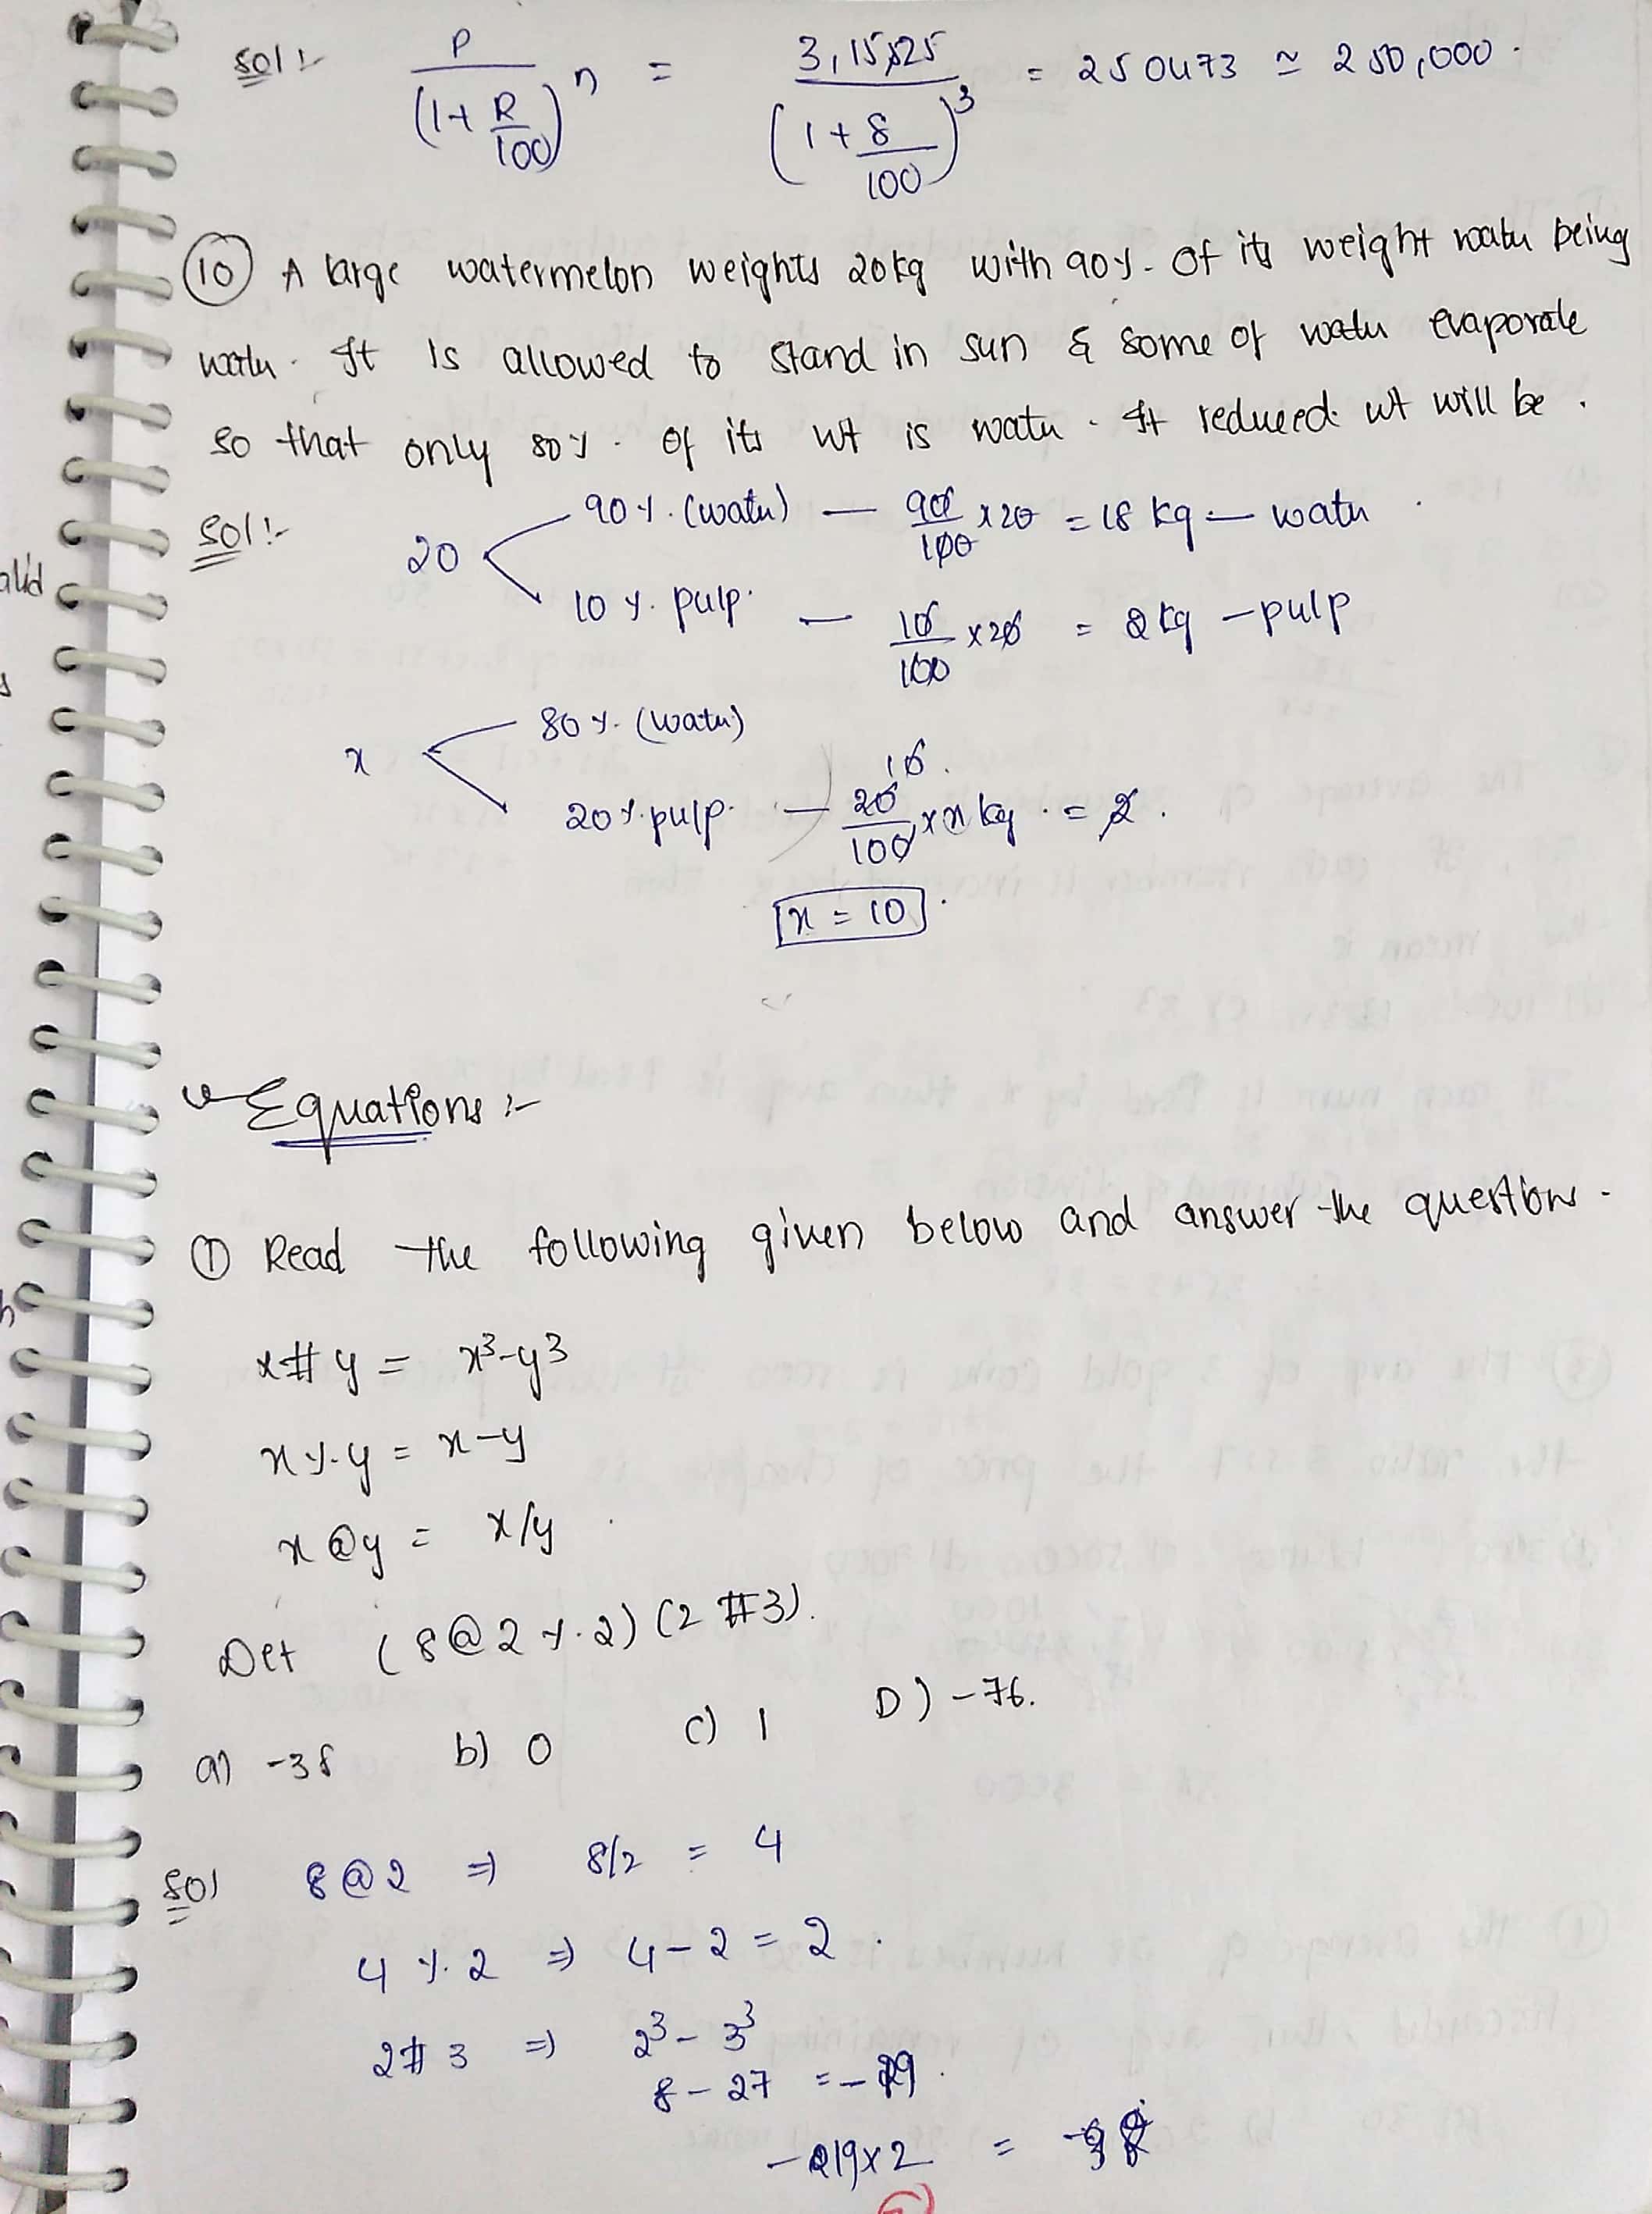 sol:- P / (1 + R/100)^n = 3,15,125 / (1 + 8/100)^3 = 250473 ≃ 250,000.
(10) A large watermelon weights 20kg with 90%. Of its weight water being
water. It is allowed to stand in sun & some of water evaporate
so that only 80%. of its wt is water. It reduced wt will be.
sol:- 20 90%. (water) — 90/100 x 20 = 18 kg — water
10%. pulp. — 10/100 x 20 = 2kg — pulp
x 80%. (water)
20%. pulp. — 20/100 x x kg. = 2.
10.
x = 10.
Equations:-
① Read the following given below and answer the questions.
x # y = x³-y³
x %. y = x-y
x @ y = x/y
Det (8 @ 2 %. 2) (2 # 3).
a) -38 b) 0 c) 1 D) -76.
sol 8 @ 2 ⇒ 8/2 = 4
4 %. 2 ⇒ 4-2 = 2.
2 # 3 ⇒ 2³ - 3³
8 - 27 = -19.
-19 x 2 = -38